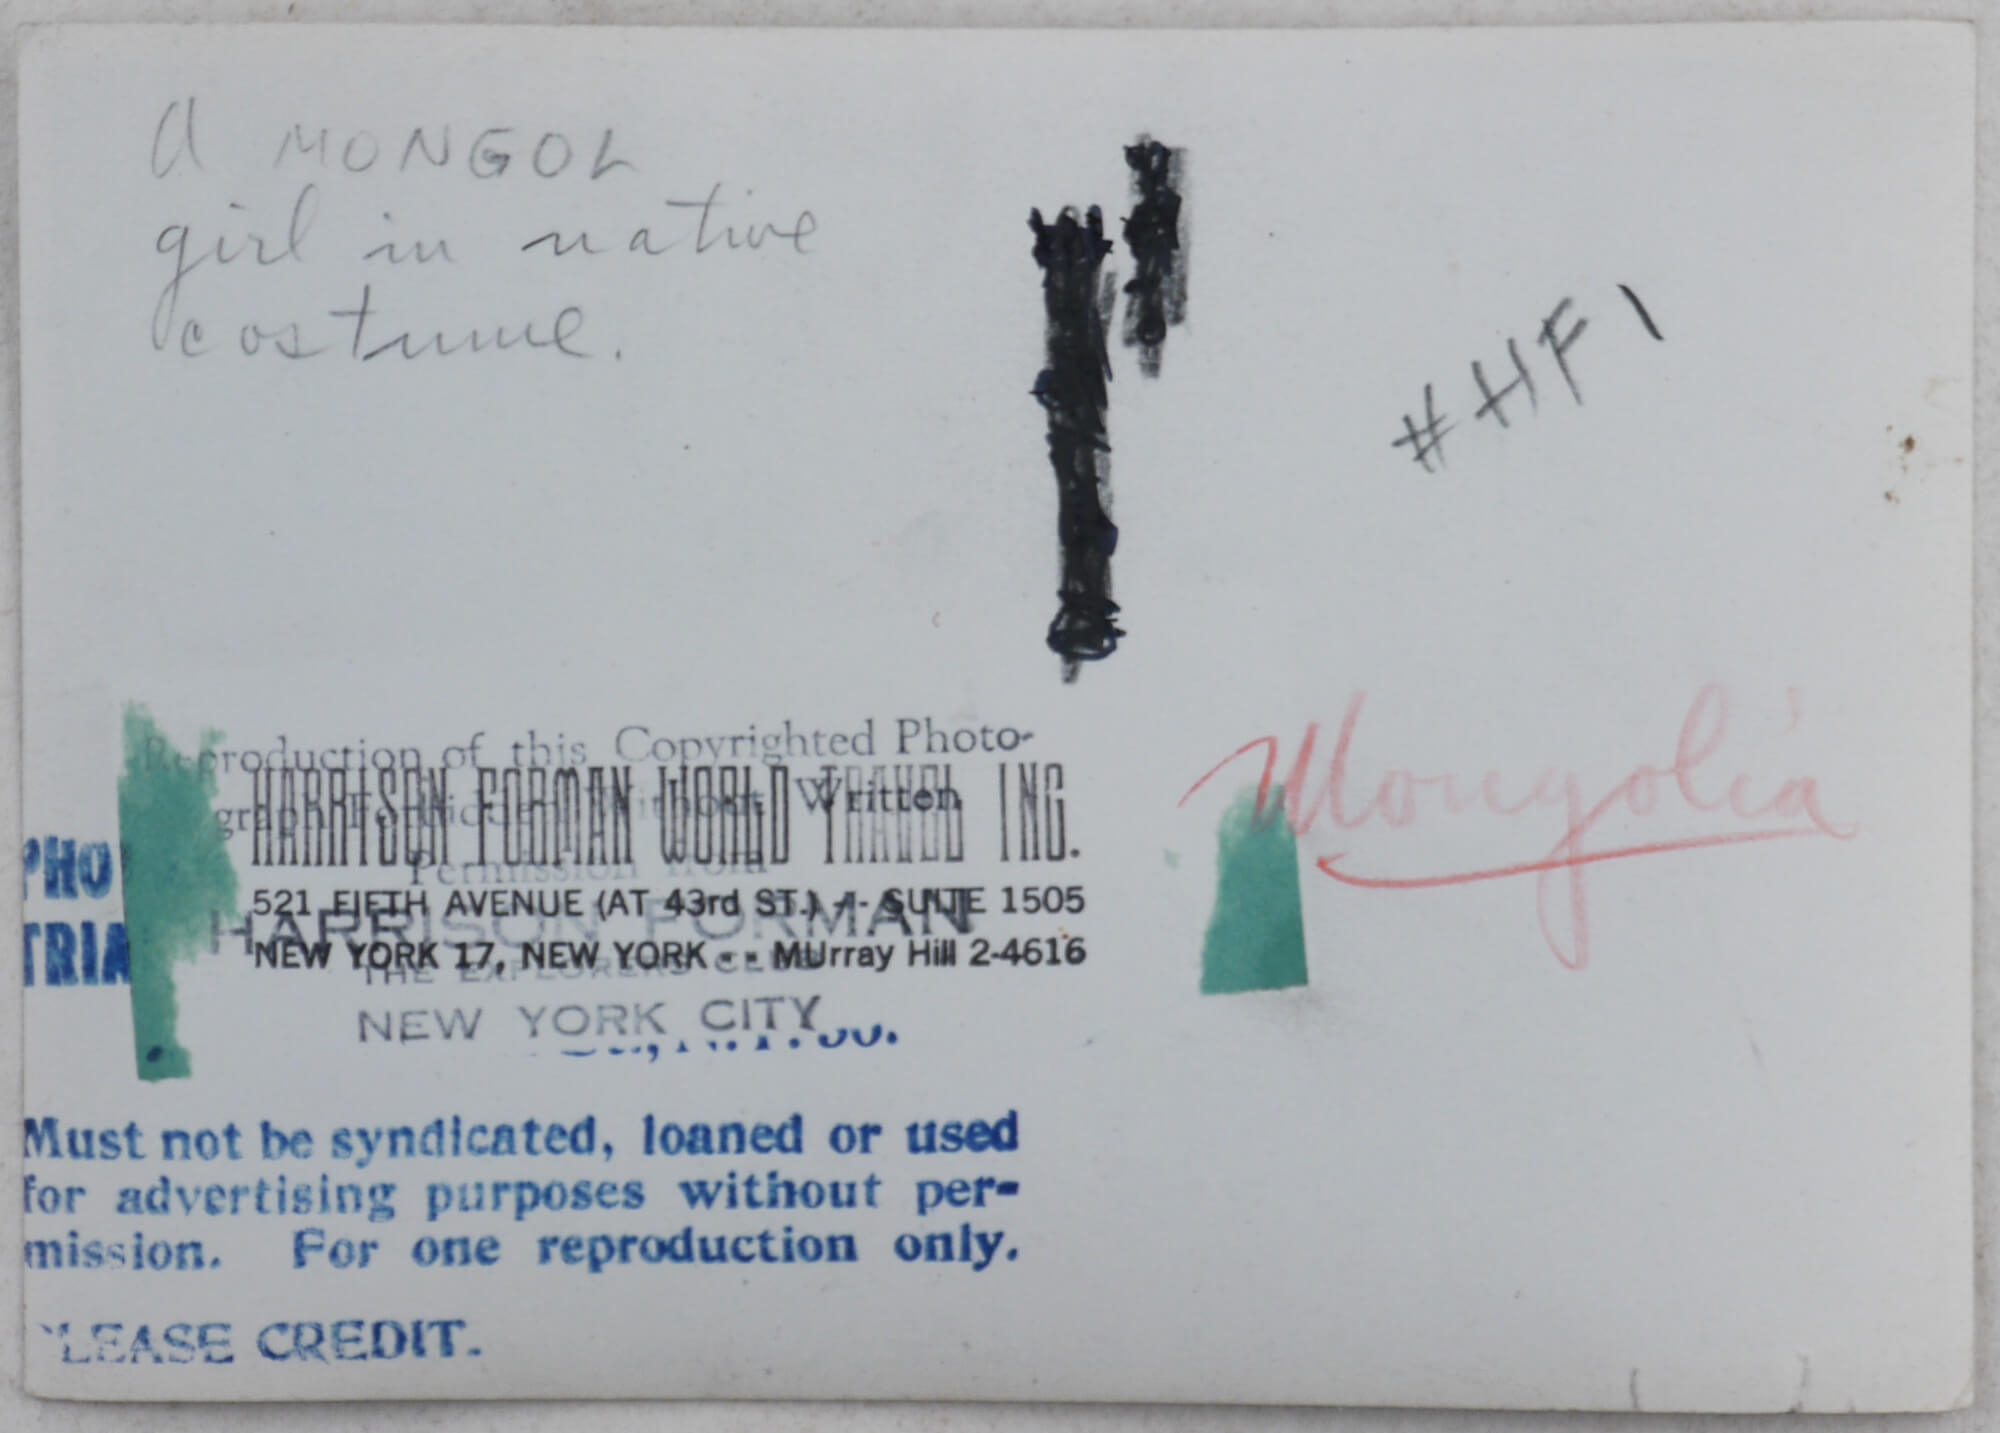 a MONGOL
girl in native
costume.
#HF1
Mongolia
Reproduction of this Copyrighted Photo-
graph Forbidden Without Written
Permission from
HARRISON FORMAN
THE EXPLORERS CLUB
NEW YORK CITY
HARRISON FORMAN WORLD TRAVEL INC.
521 FIFTH AVENUE (AT 43rd ST.) -- SUITE 1505
NEW YORK 17, NEW YORK -- MUrray Hill 2-4616
PHO
TRIA
Must not be syndicated, loaned or used
for advertising purposes without per-
mission. For one reproduction only.
PLEASE CREDIT.